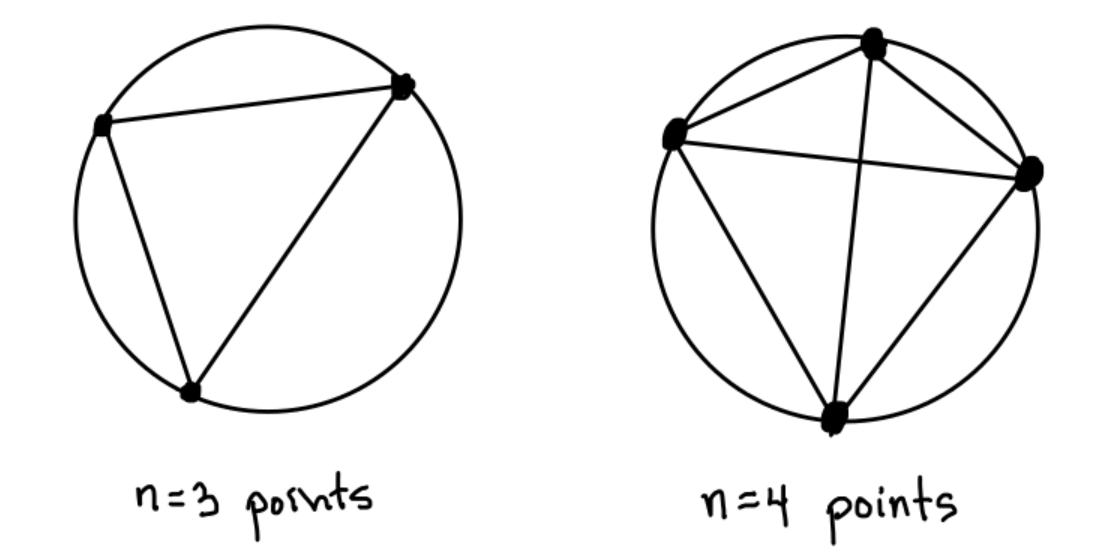 n=3 points
n=4 points